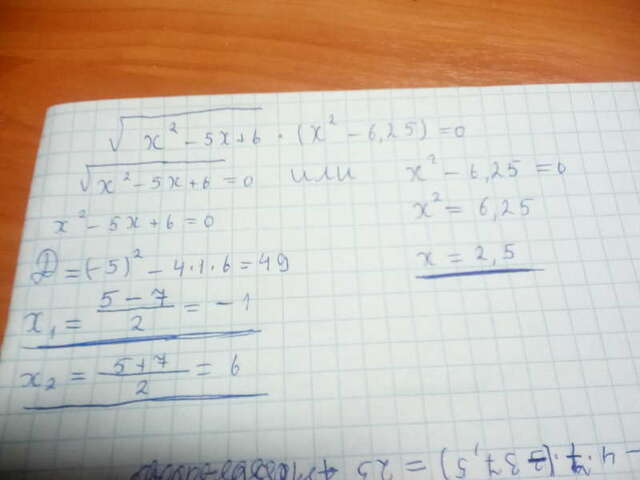 √(x² - 5x + 6) · (x² - 6,25) = 0
√(x² - 5x + 6) = 0 или x² - 6,25 = 0
x² - 5x + 6 = 0
x² = 6,25
D = (-5)² - 4·1·6 = 49
x = 2,5
x₁ = (5 - 7)/2 = -1
x₂ = (5 + 7)/2 = 6